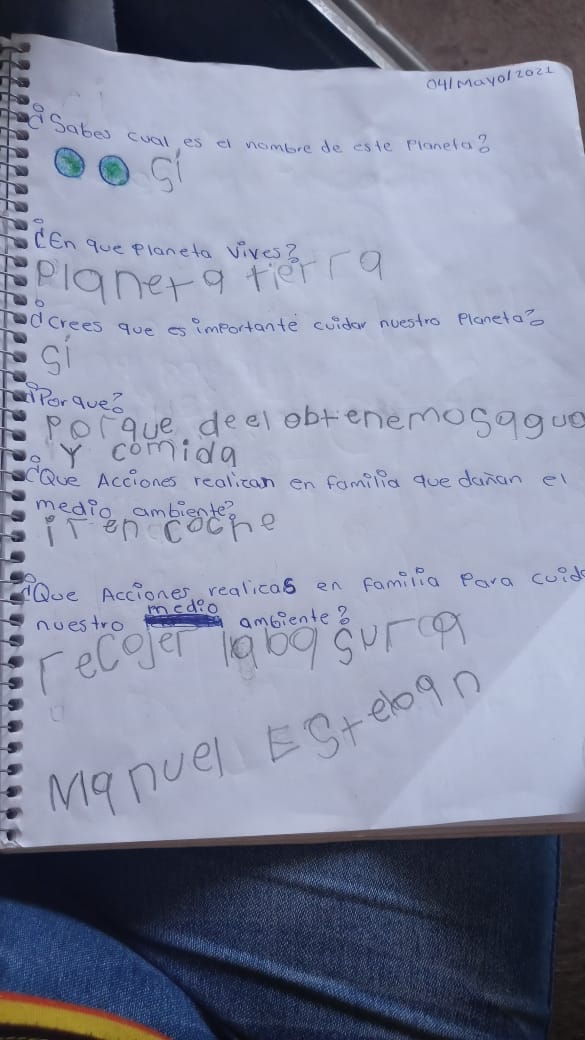 04/Mayo/2021
¿Sabes cual es el nombre de este Planeta?
Sí
¿En que Planeta vives?
Planeta tierra
¿Crees que es importante cuidar nuestro Planeta?
Sí
¿Porque?
Porque de el obtenemos agua
Y comida
¿Que Acciones realican en familia que dañan el
medio ambiente?
ir en coche
¿Que Acciones realicas en familia Para cuid
nuestro medio ambiente?
recojer la ba surca
Manuel ESteban